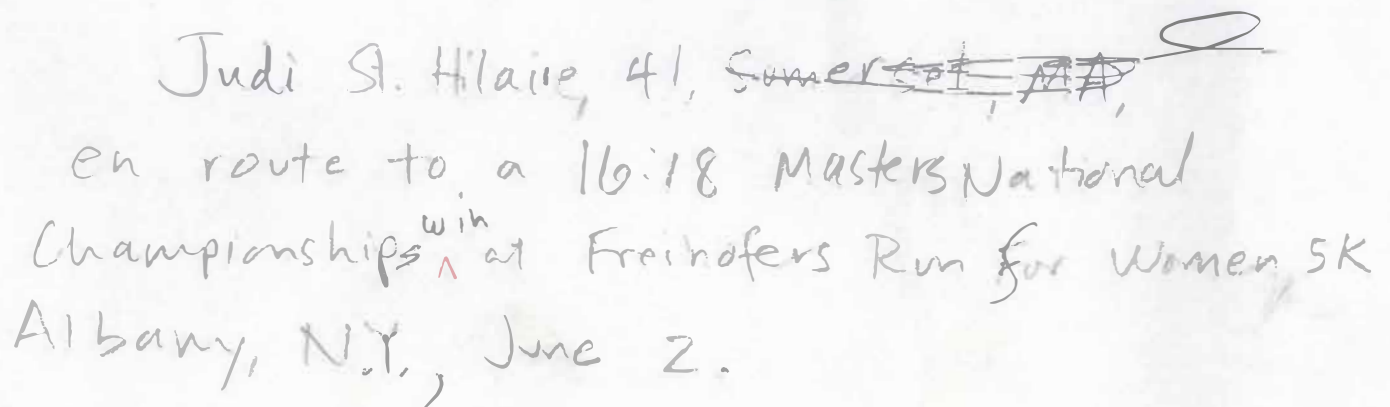 Judi St. Hilaire, 41, Somerset, MA,
en route to a 16:18 Masters National
Championships win at Freihofers Run for Women 5K
Albany, N.Y., June 2.